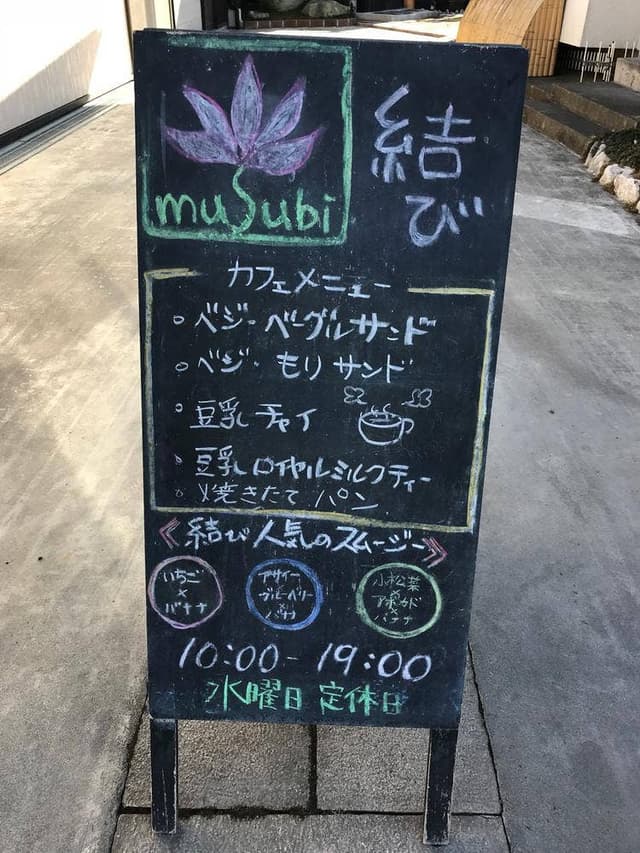 musubi
結び
カフェメニュー
○ ベジーベーグルサンド
○ ベジ・もりサンド
○ 豆乳チャイ
○ 豆乳ロイヤルミルクティー
○ 焼きたて パン
《結び人気のスムージー》
いちご
×
バナナ
アサイー
×
ブルーベリー
×
バナナ
小松菜
×
アボカド
×
バナナ
10:00-19:00
水曜日 定休日